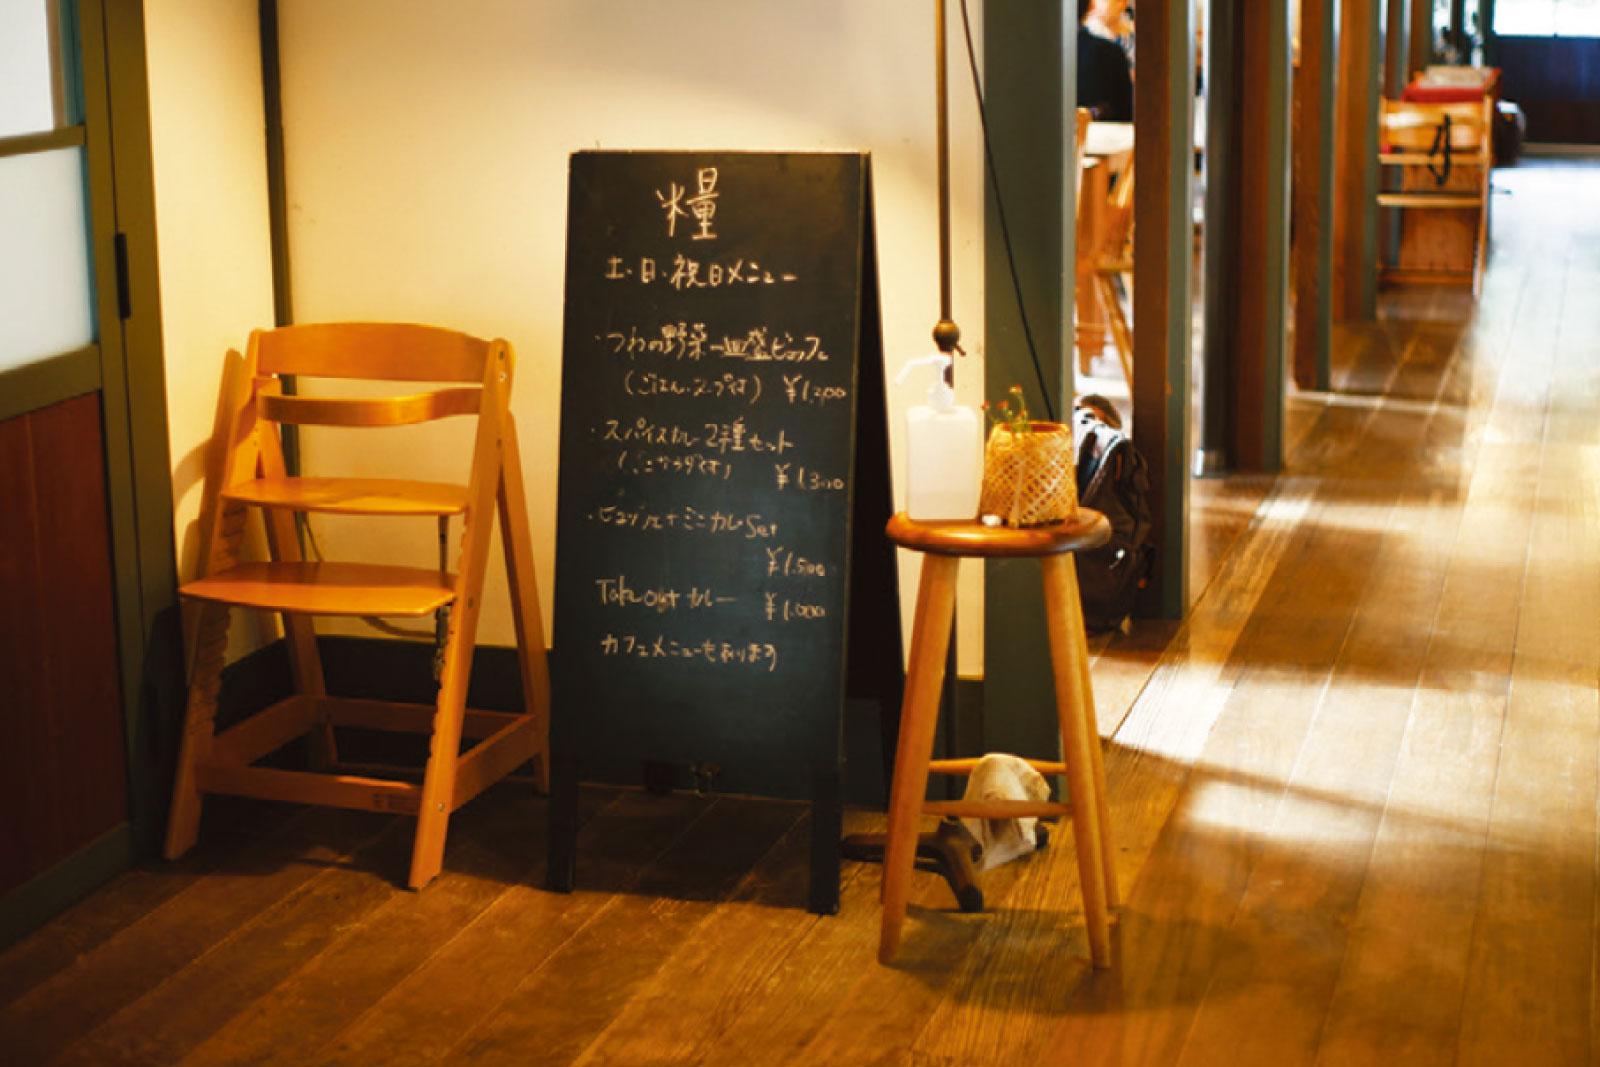 糧
土・日・祝日メニュー
・つわの野菜一皿盛ビュッフェ
(ごはん・スープです) ¥1,200
・スパイスカレー2種セット
¥1,300
・ビュッフェ+ミニカレーSet
¥1,500
Take out カレー ¥1,000
カフェメニューもあります